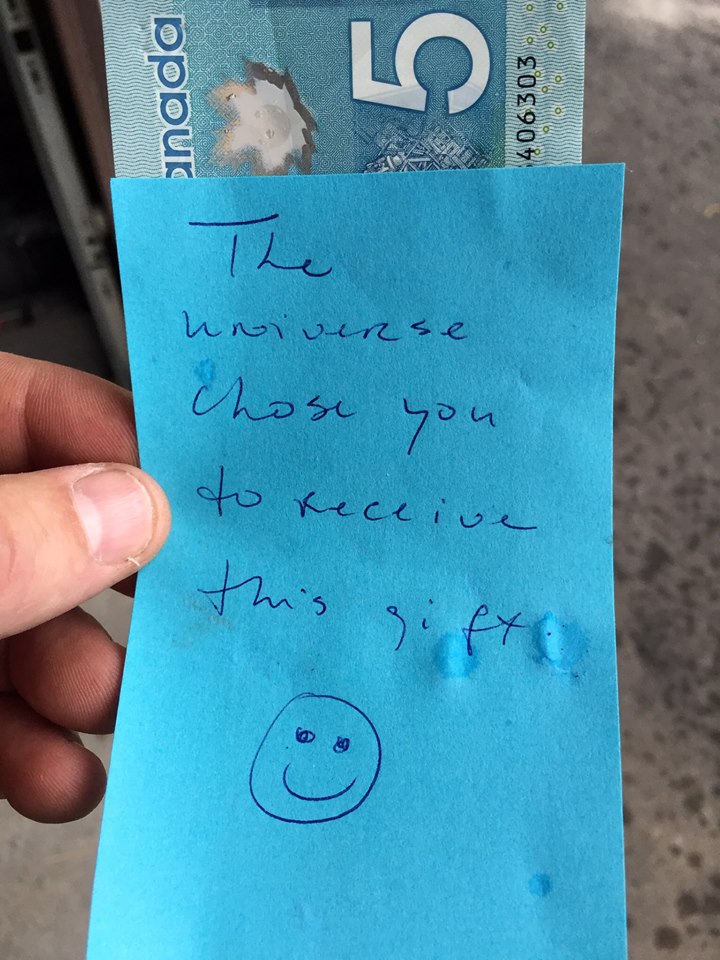 anada
5
406303
The
universe
chose you
to receive
this gift.